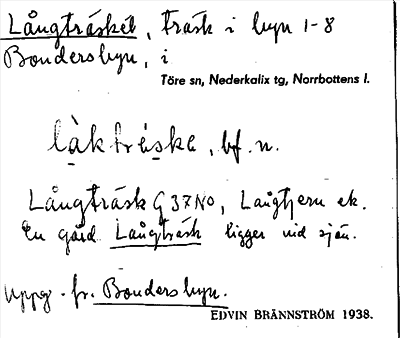 Långträsket, träsk i byn 1-8
Bondersbyn, i
Töre sn, Nederkalix tg, Norrbottens l.
làktrèske, bf. n.
Långträsk G 37 NO, Långtjern ek.
En gård Långträsk ligger vid sjön.
Uppg. fr. Bondersbyn.
EDVIN BRÄNNSTRÖM 1938.